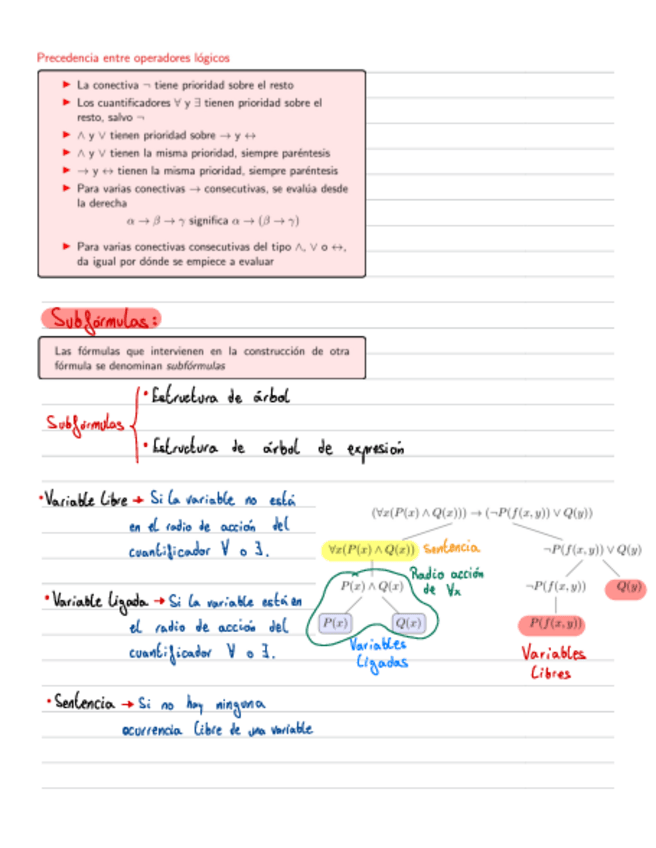 Precedencia entre operadores lógicos
► La conectiva ¬ tiene prioridad sobre el resto
► Los cuantificadores ∀ y ∃ tienen prioridad sobre el
resto, salvo ¬
► ∧ y ∨ tienen prioridad sobre → y ↔
► ∧ y ∨ tienen la misma prioridad, siempre paréntesis
► → y ↔ tienen la misma prioridad, siempre paréntesis
► Para varias conectivas → consecutivas, se evalúa desde
la derecha
α → β → γ significa α → (β → γ)
► Para varias conectivas consecutivas del tipo ∧, ∨ o ↔,
da igual por dónde se empiece a evaluar
Subfórmulas:
Las fórmulas que intervienen en la construcción de otra
fórmula se denominan subfórmulas
Subfórmulas
• Estructura de árbol
• Estructura de árbol de expresión
• Variable Libre → Si la variable no está
en el radio de acción del
cuantificador ∀ o ∃.
• Variable Ligada → Si la variable está en
el radio de acción del
cuantificador ∀ o ∃.
• Sentencia → Si no hay ninguna
ocurrencia libre de una variable
(∀x(P(x) ∧ Q(x))) → (¬P(f(x, y)) ∨ Q(y))
∀x(P(x) ∧ Q(x)) Sentencia
¬P(f(x, y)) ∨ Q(y)
P(x) ∧ Q(x)
Radio acción
de ∀x
¬P(f(x, y))
Q(y)
P(x)
Q(x)
P(f(x, y))
Variables
Ligadas
Variables
Libres